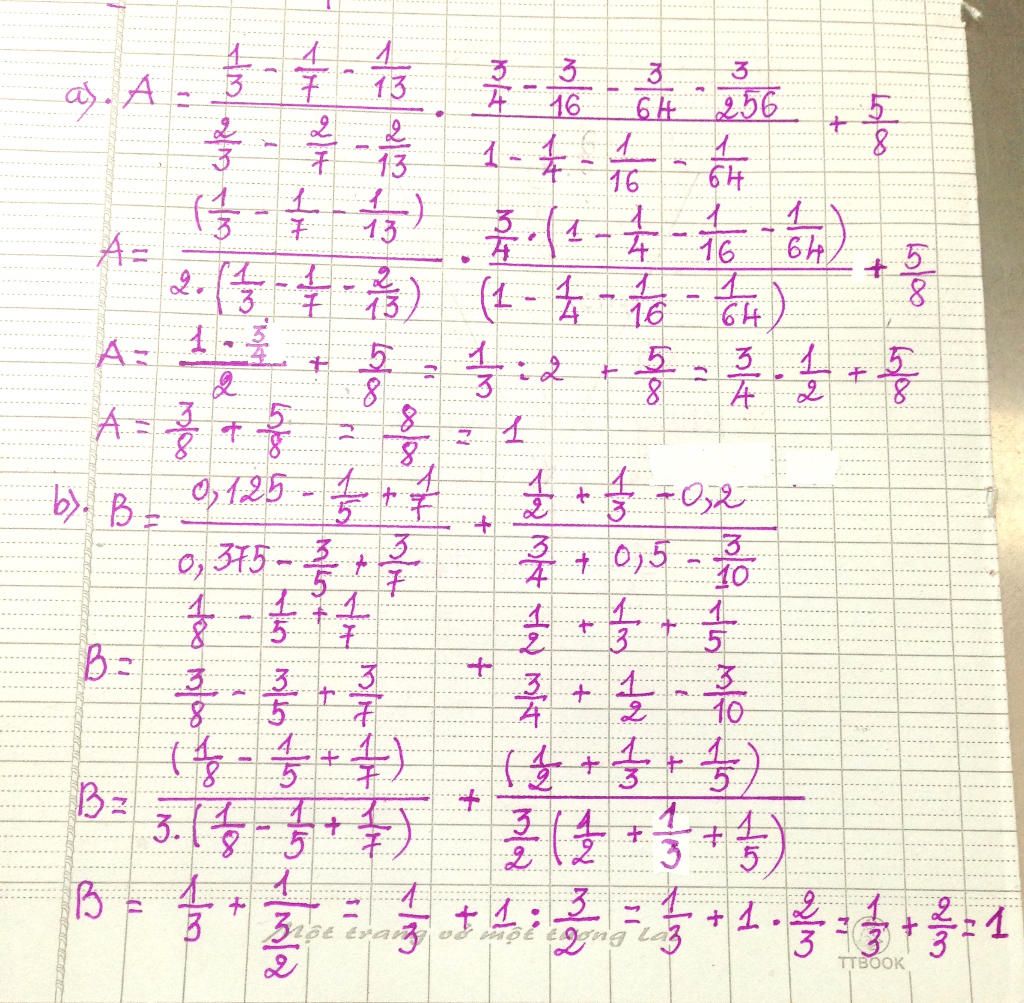 a). A = (1/3 - 1/7 - 1/13)/(2/3 - 2/7 - 2/13) . (3/4 - 3/16 - 3/64 - 3/256)/(1 - 1/4 - 1/16 - 1/64) + 5/8
A = (1/3 - 1/7 - 1/13)/(2.(1/3 - 1/7 - 2/13)) . (3/4.(1 - 1/4 - 1/16 - 1/64))/((1 - 1/4 - 1/16 - 1/64)) + 5/8
A = (1 . 3/4)/2 + 5/8 = 1/3 : 2 + 5/8 = 3/4 . 1/2 + 5/8
A = 3/8 + 5/8 = 8/8 = 1
b). B = (0,125 - 1/5 + 1/7)/(0,375 - 3/5 + 3/7) + (1/2 + 1/3 - 0,2)/(3/4 + 0,5 - 3/10)
B = (1/8 - 1/5 + 1/7)/(3/8 - 3/5 + 3/7) + (1/2 + 1/3 + 1/5)/(3/4 + 1/2 - 3/10)
B = (1/8 - 1/5 + 1/7)/(3.(1/8 - 1/5 + 1/7)) + (1/2 + 1/3 + 1/5)/(3/2(1/2 + 1/3 + 1/5))
B = 1/3 + 1/(3/2) = 1/3 + 1 : 3/2 = 1/3 + 1 . 2/3 = 1/3 + 2/3 = 1
Một trang vở một tương lai
TTBOOK